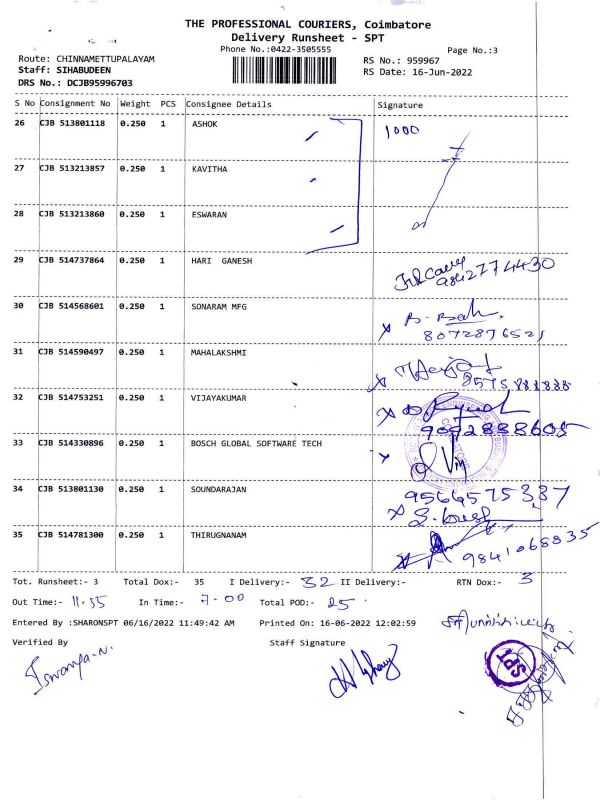 THE PROFESSIONAL COURIERS, Coimbatore
Delivery Runsheet - SPT
Phone No.:0422-3505555
Page No.:3
Route: CHINNAMETTUPALAYAM
RS No.: 959967
Staff: SIHABUDEEN
RS Date: 16-Jun-2022
DRS No.: DCJB95996703
S No Consignment No Weight PCS Consignee Details Signature
26 CJB 513801118 0.250 1 ASHOK 1000
27 CJB 513213857 0.250 1 KAVITHA
28 CJB 513213860 0.250 1 ESWARAN
29 CJB 514737864 0.250 1 HARI GANESH
9842774430
30 CJB 514568601 0.250 1 SONARAM MFG
8072876521
31 CJB 514590497 0.250 1 MAHALAKSHMI
32 CJB 514753251 0.250 1 VIJAYAKUMAR
33 CJB 514330896 0.250 1 BOSCH GLOBAL SOFTWARE TECH
34 CJB 513801130 0.250 1 SOUNDARAJAN
35 CJB 514781300 0.250 1 THIRUGNANAM
9841068835
Tot. Runsheet:- 3 Total Dox:- 35 I Delivery:- 32 II Delivery:- RTN Dox:- 3
Out Time:- 11.55 In Time:- 7.00 Total POD:- 25
Entered By :SHARONSPT 06/16/2022 11:49:42 AM Printed On: 16-06-2022 12:02:59
Verified By Staff Signature
SPT